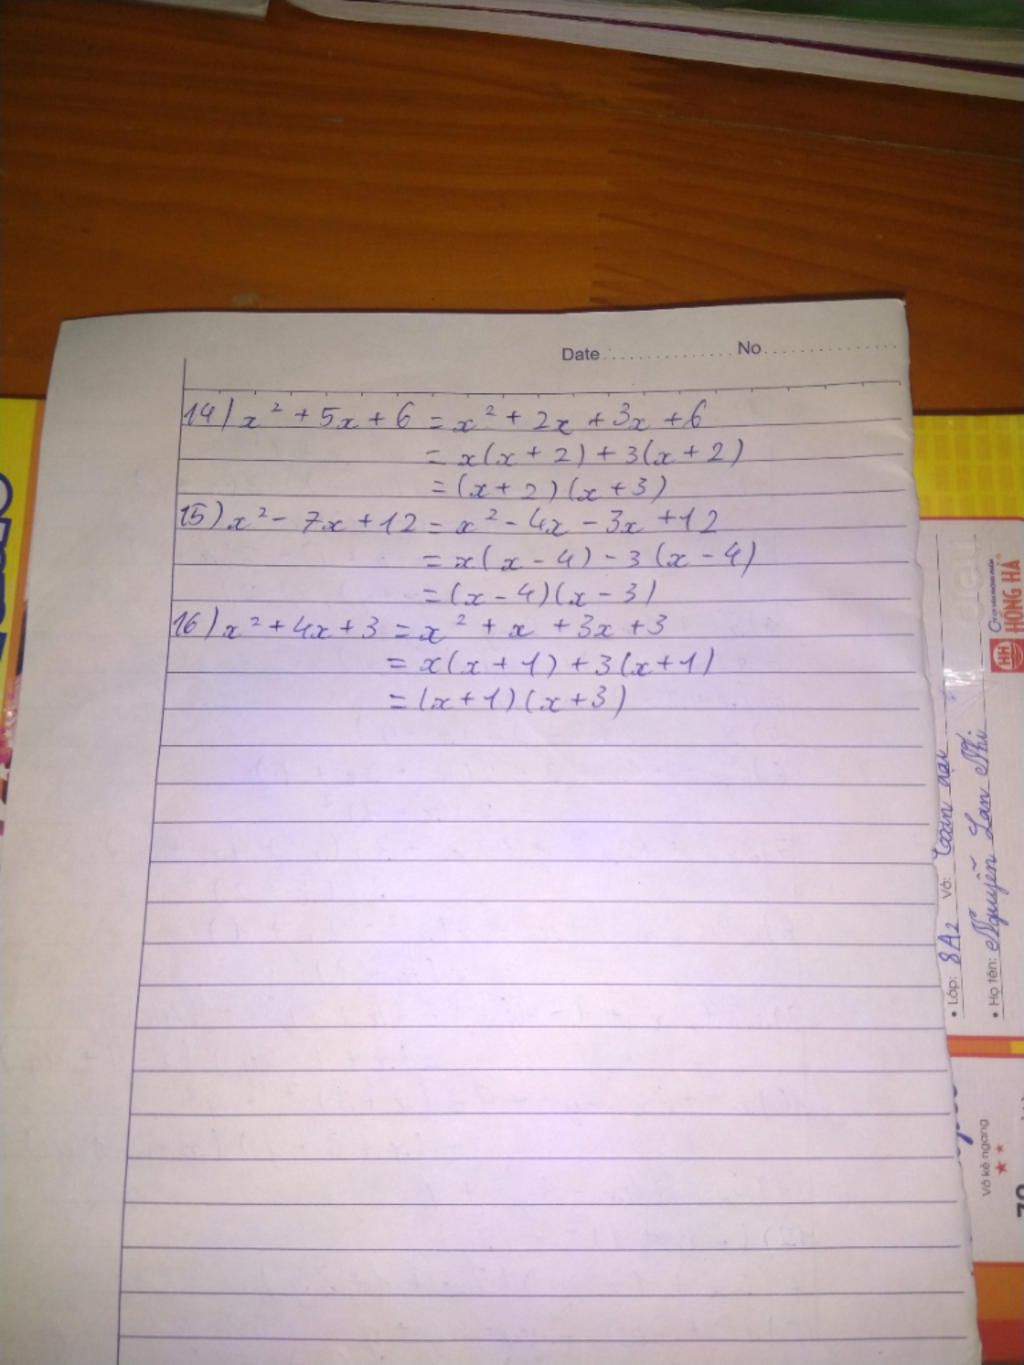 Date ............... No ...............
14) x² + 5x + 6 = x² + 2x + 3x + 6
= x(x + 2) + 3(x + 2)
= (x + 2)(x + 3)
15) x² - 7x + 12 = x² - 4x - 3x + 12
= x(x - 4) - 3(x - 4)
= (x - 4)(x - 3)
16) x² + 4x + 3 = x² + x + 3x + 3
= x(x + 1) + 3(x + 1)
= (x + 1)(x + 3)
HH HỒNG HÀ
• Lớp: 8A2 Vở: Toán đại
• Họ tên: Nguyễn Lan Nhi
Vở kẻ ngang